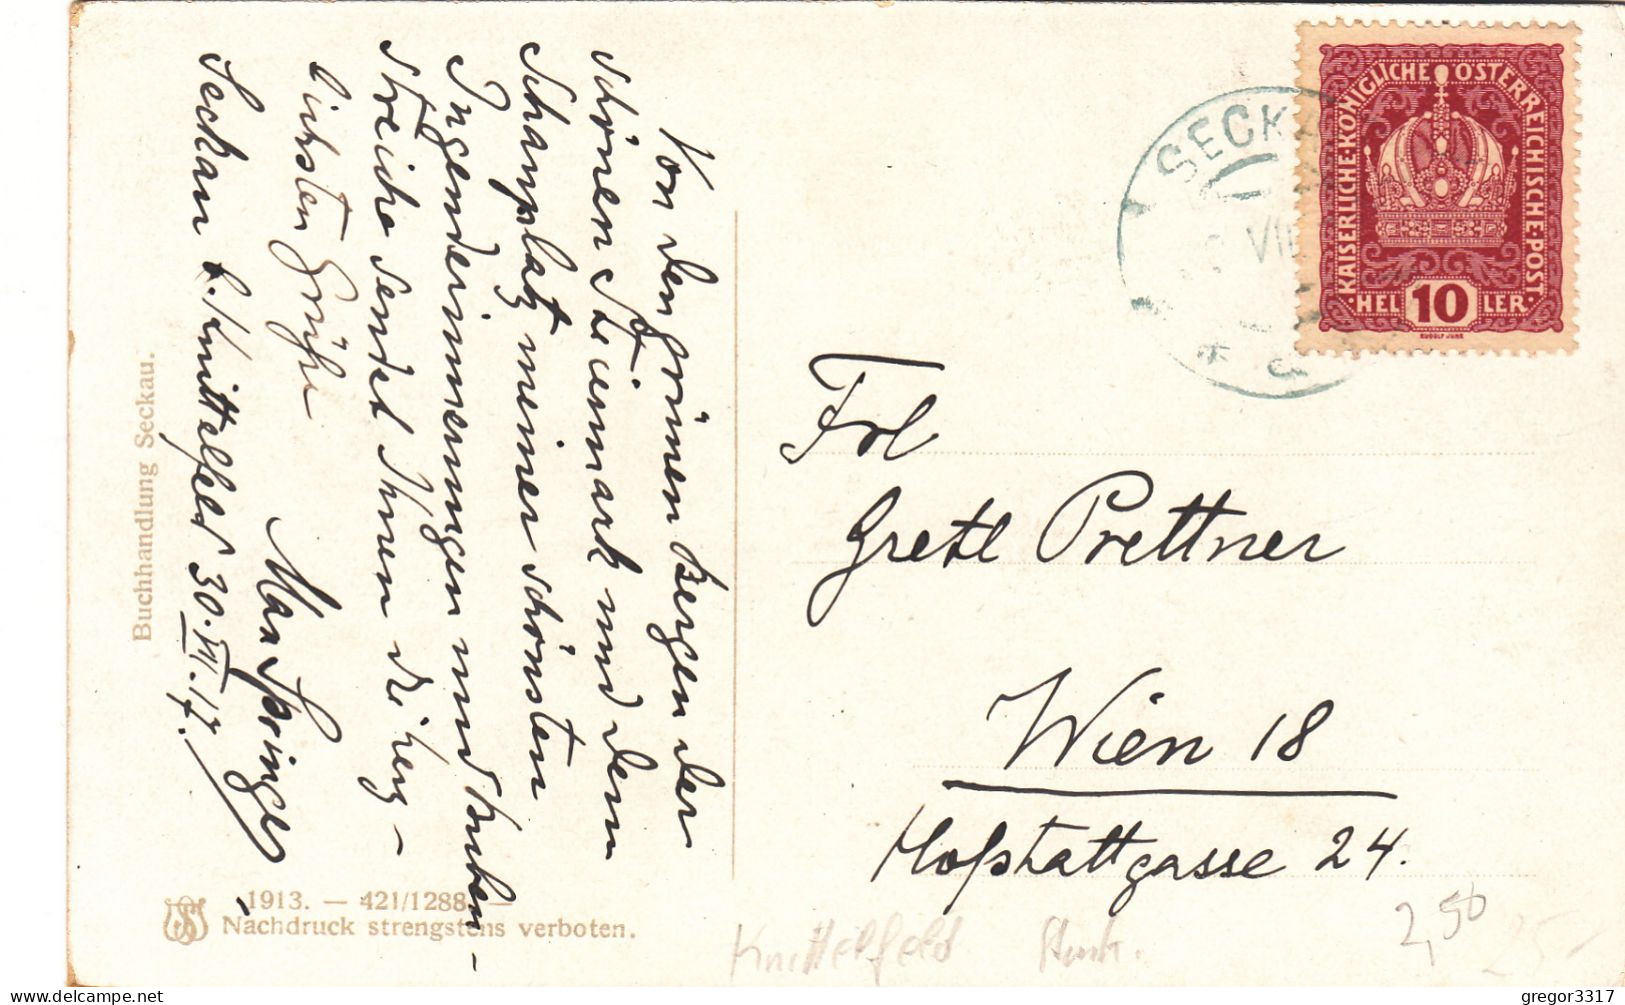 Von den grünen Bergen der
schönen St. Steiermark und dem
Schauplatz meiner schönsten
Jugenderinnerungen und Buben-
streiche sendet Ihnen die herz-
lichsten Grüße
Max Springer
Seckau b. Knittelfeld 30.VII.17.
Buchhandlung Seckau.
1913. — 421/1288. —
Nachdruck strengstens verboten.
KAISERLICHE·KÖNIGLICHE ÖSTERREICHISCHE·POST·
·HEL 10 LER·
RUDOLF JUNK
SECKA
VII
Frl
Gretl Prettner
Wien 18
Hofstattgasse 24.
Knittelfeld
2,50
25-
delcampe.net
gregor3317